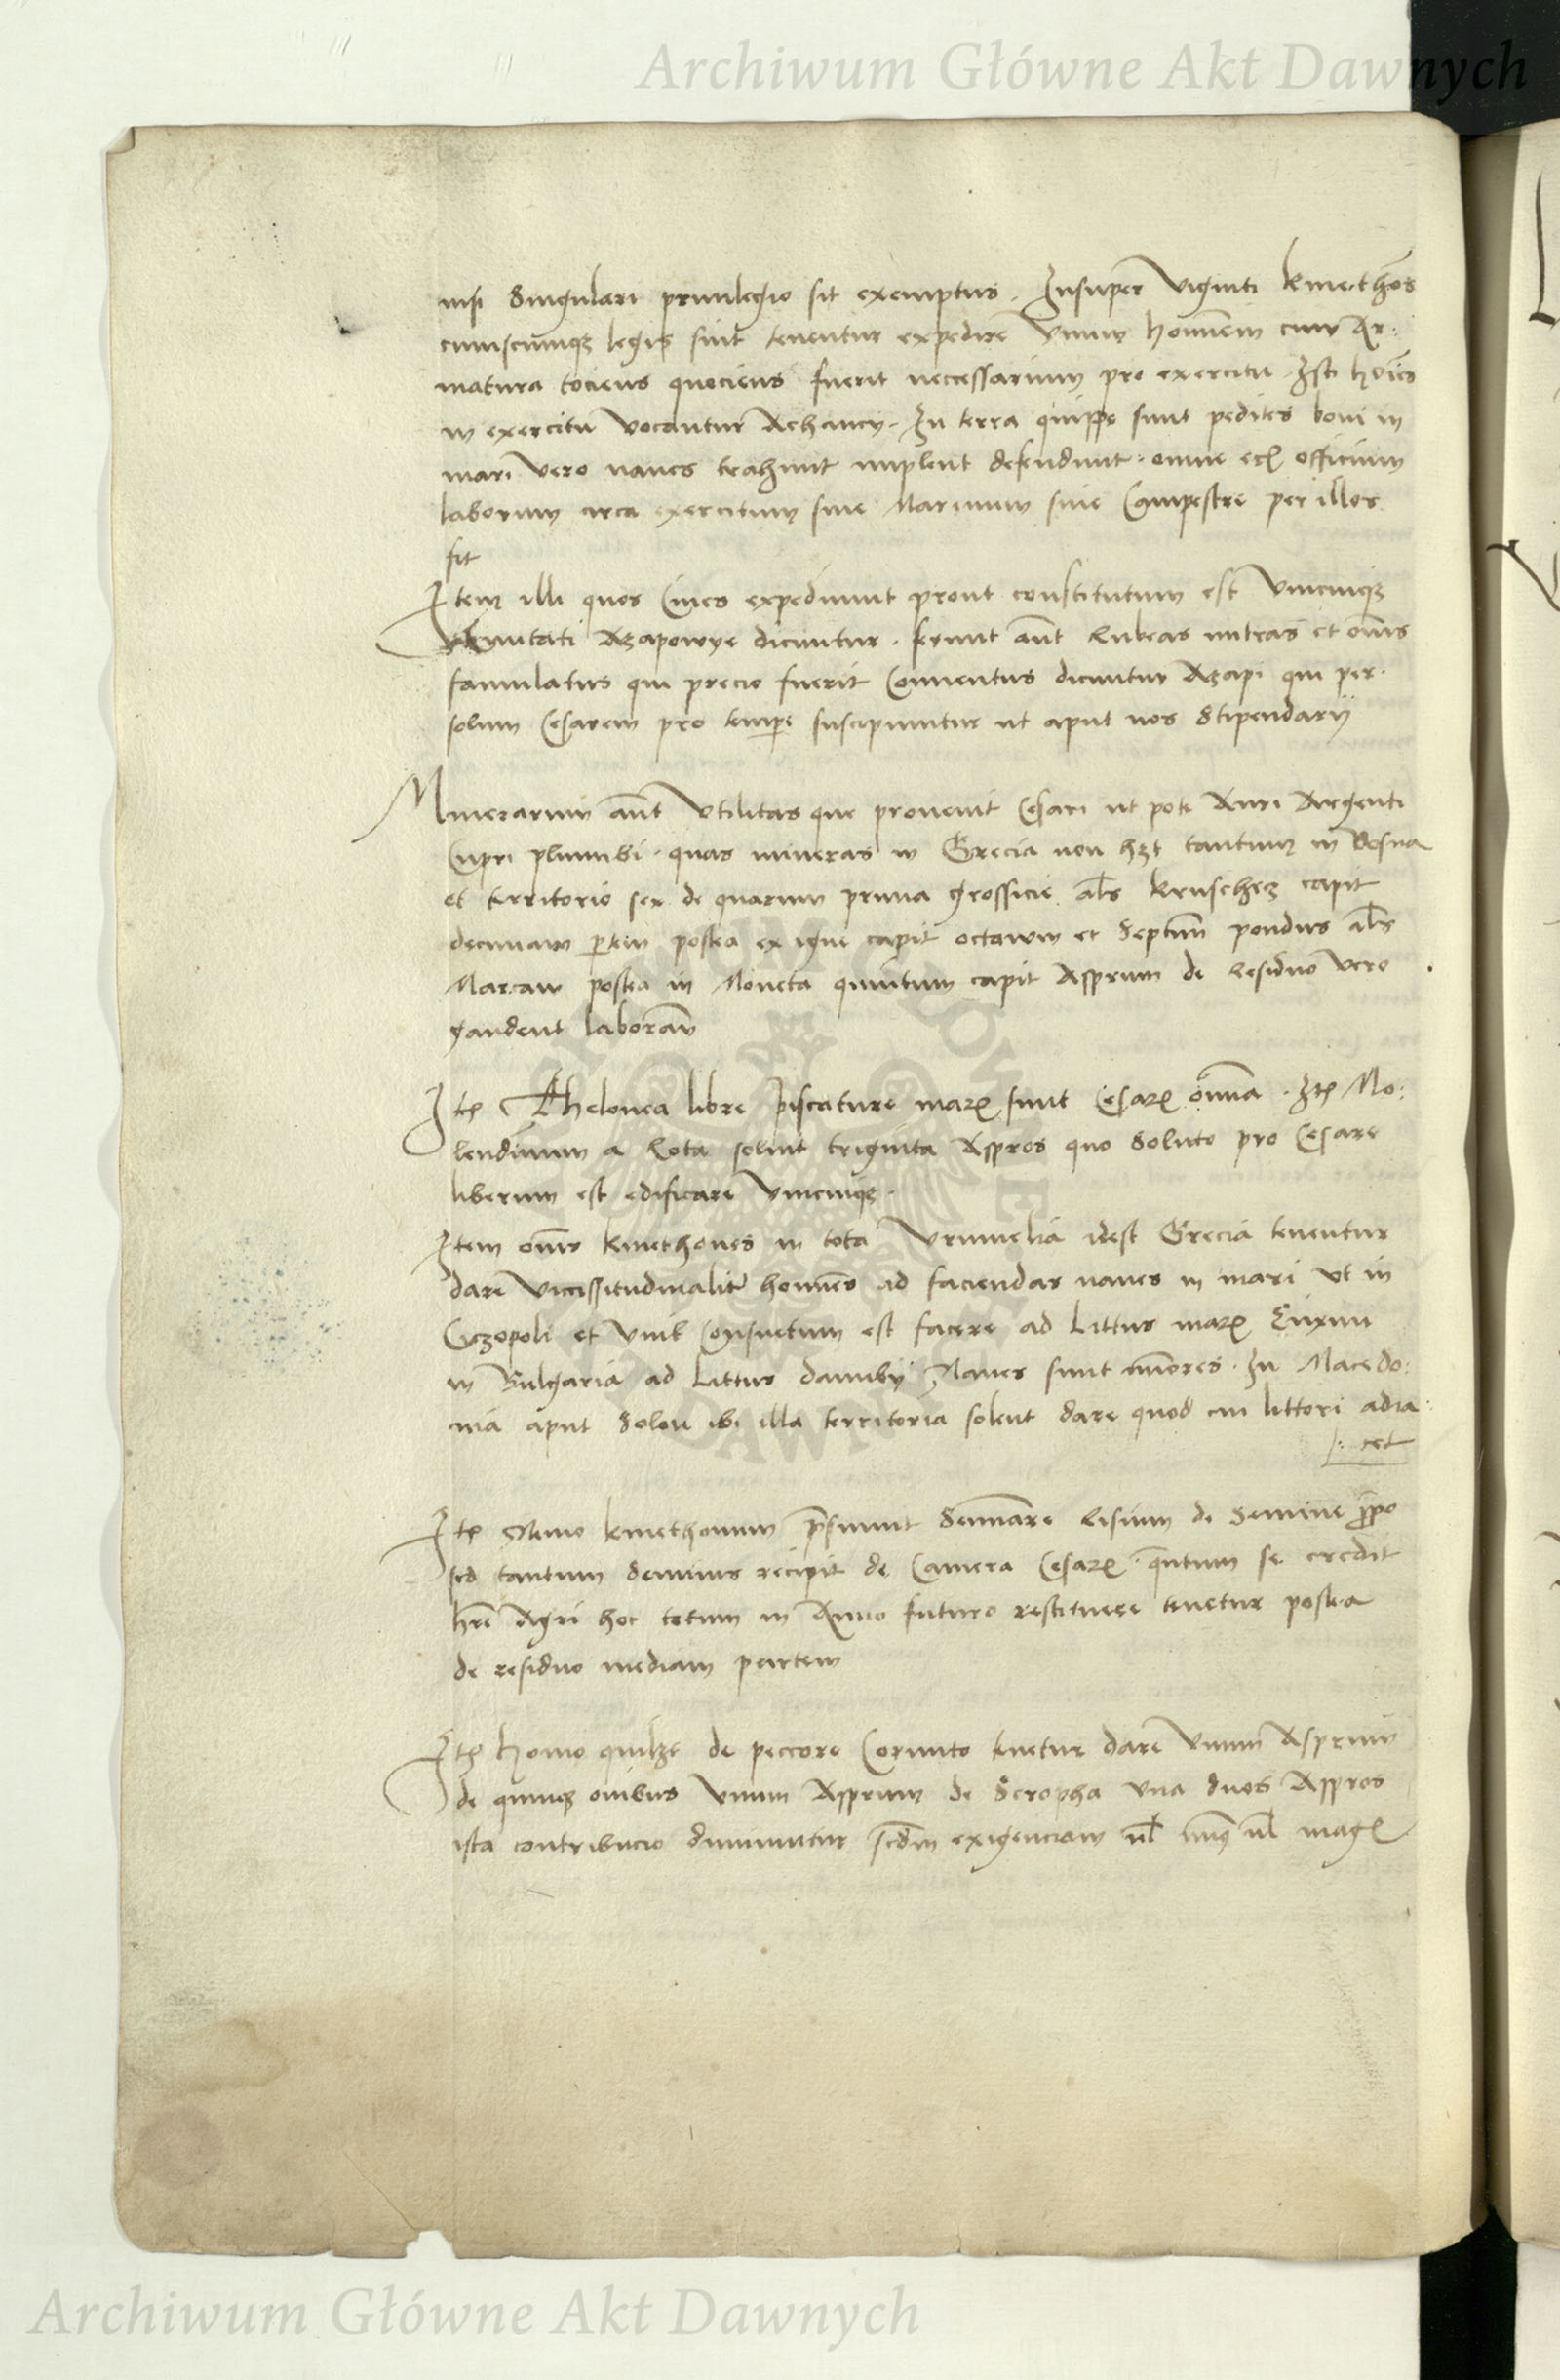 Archiwum Główne Akt Dawnych
nisi Singulari priuilegio sit exemptus. Insuper Viginti kmethões
cuiuscumqz legis sint tenentur expedire Vnum hominem cum Ar:
matura tociens quociens fuerit neccessarium pro exercitu. Isti hoies
in exercitu vocantur Achancy. In terra quippe sunt pedites boni in
mari vero naues trahunt implent defendunt. omne officium
laborum circa exercitum siue Marinum siue Campestre per illos
fit
Item illi quos Ciues expediunt prout constitutum est Vnicuiqz
Ciuitati Azapowye dicuntur. ferunt aut Rubeas mitras et omis
famulatus qui precio fuerit Conuentus dicuntur Azapi qui per
solum Cesarem pro tempe suscipiuntur ut aput nos Stipendarii
Minerarum aut Vtilitas que prouenit Cesari ut pote Auri Argenti
Cupri plumbi. quas mineras in Grecia non hzt tantum in Bosna
et territorio sex de quarum prima grossicie als kruschecz capit
decimam ptem postea ex igne capit octauum et Septim pondus als
Marcam postea in Moneta quintum capit Asprum de Residuo vero
gaudent
Ite Thelonea libre piscature mare sunt Cesare omnia. Ite Mo:
lendinum a Rota soluit triginta Aspros quo Soluto pro Cesare
liberum est edificare Vnicuiqz.
Item omes kmethones in tota Vrumelia idest Grecia tenentur
dare Viccissitudinaliter homines ad faciendas naues in mari vt in
et Consuetum est facere ad Littus mare Euxini
in Bulgaria ad Littus danubij Naues sunt miores. In Macedo:
nia aput Solon ibi illa territoria solent dare quod cui littori adia:
cet
Ite Nemo kmethonum psumit Seminare Risium de Semine ppo
sed tantum seminis recipit de Camera Cesare quntum se credit
hre Agri hoc totum in Anno futuro restituere tenetur postea
de residuo mediam partem
Ite homo quilzt de peccore Cornuto tenetur dare Vnum Asprum
de quinqz ouibus Vnum Asprum de Scropha vna duos Aspros
ista contribucio diminuitur scdm exigenciam vl vl
Archiwum Główne Akt Dawnych